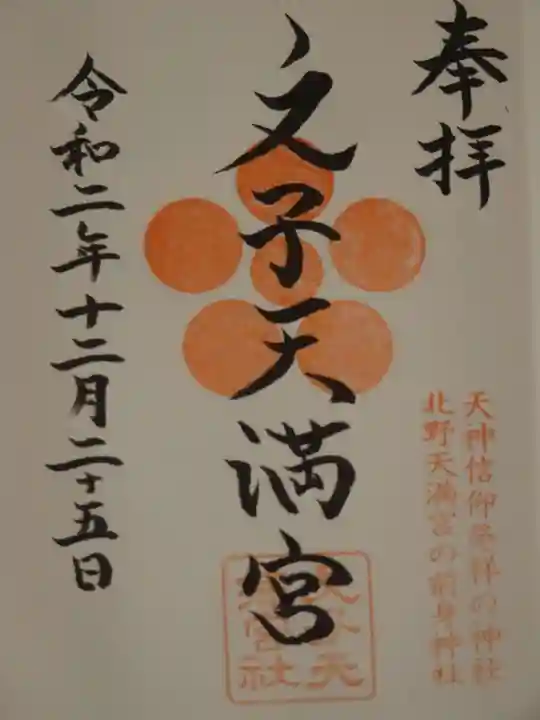 奉拝
天神信仰発祥の神社
北野天満宮の前身神社
文子天満宮
令和二年十二月二十五日